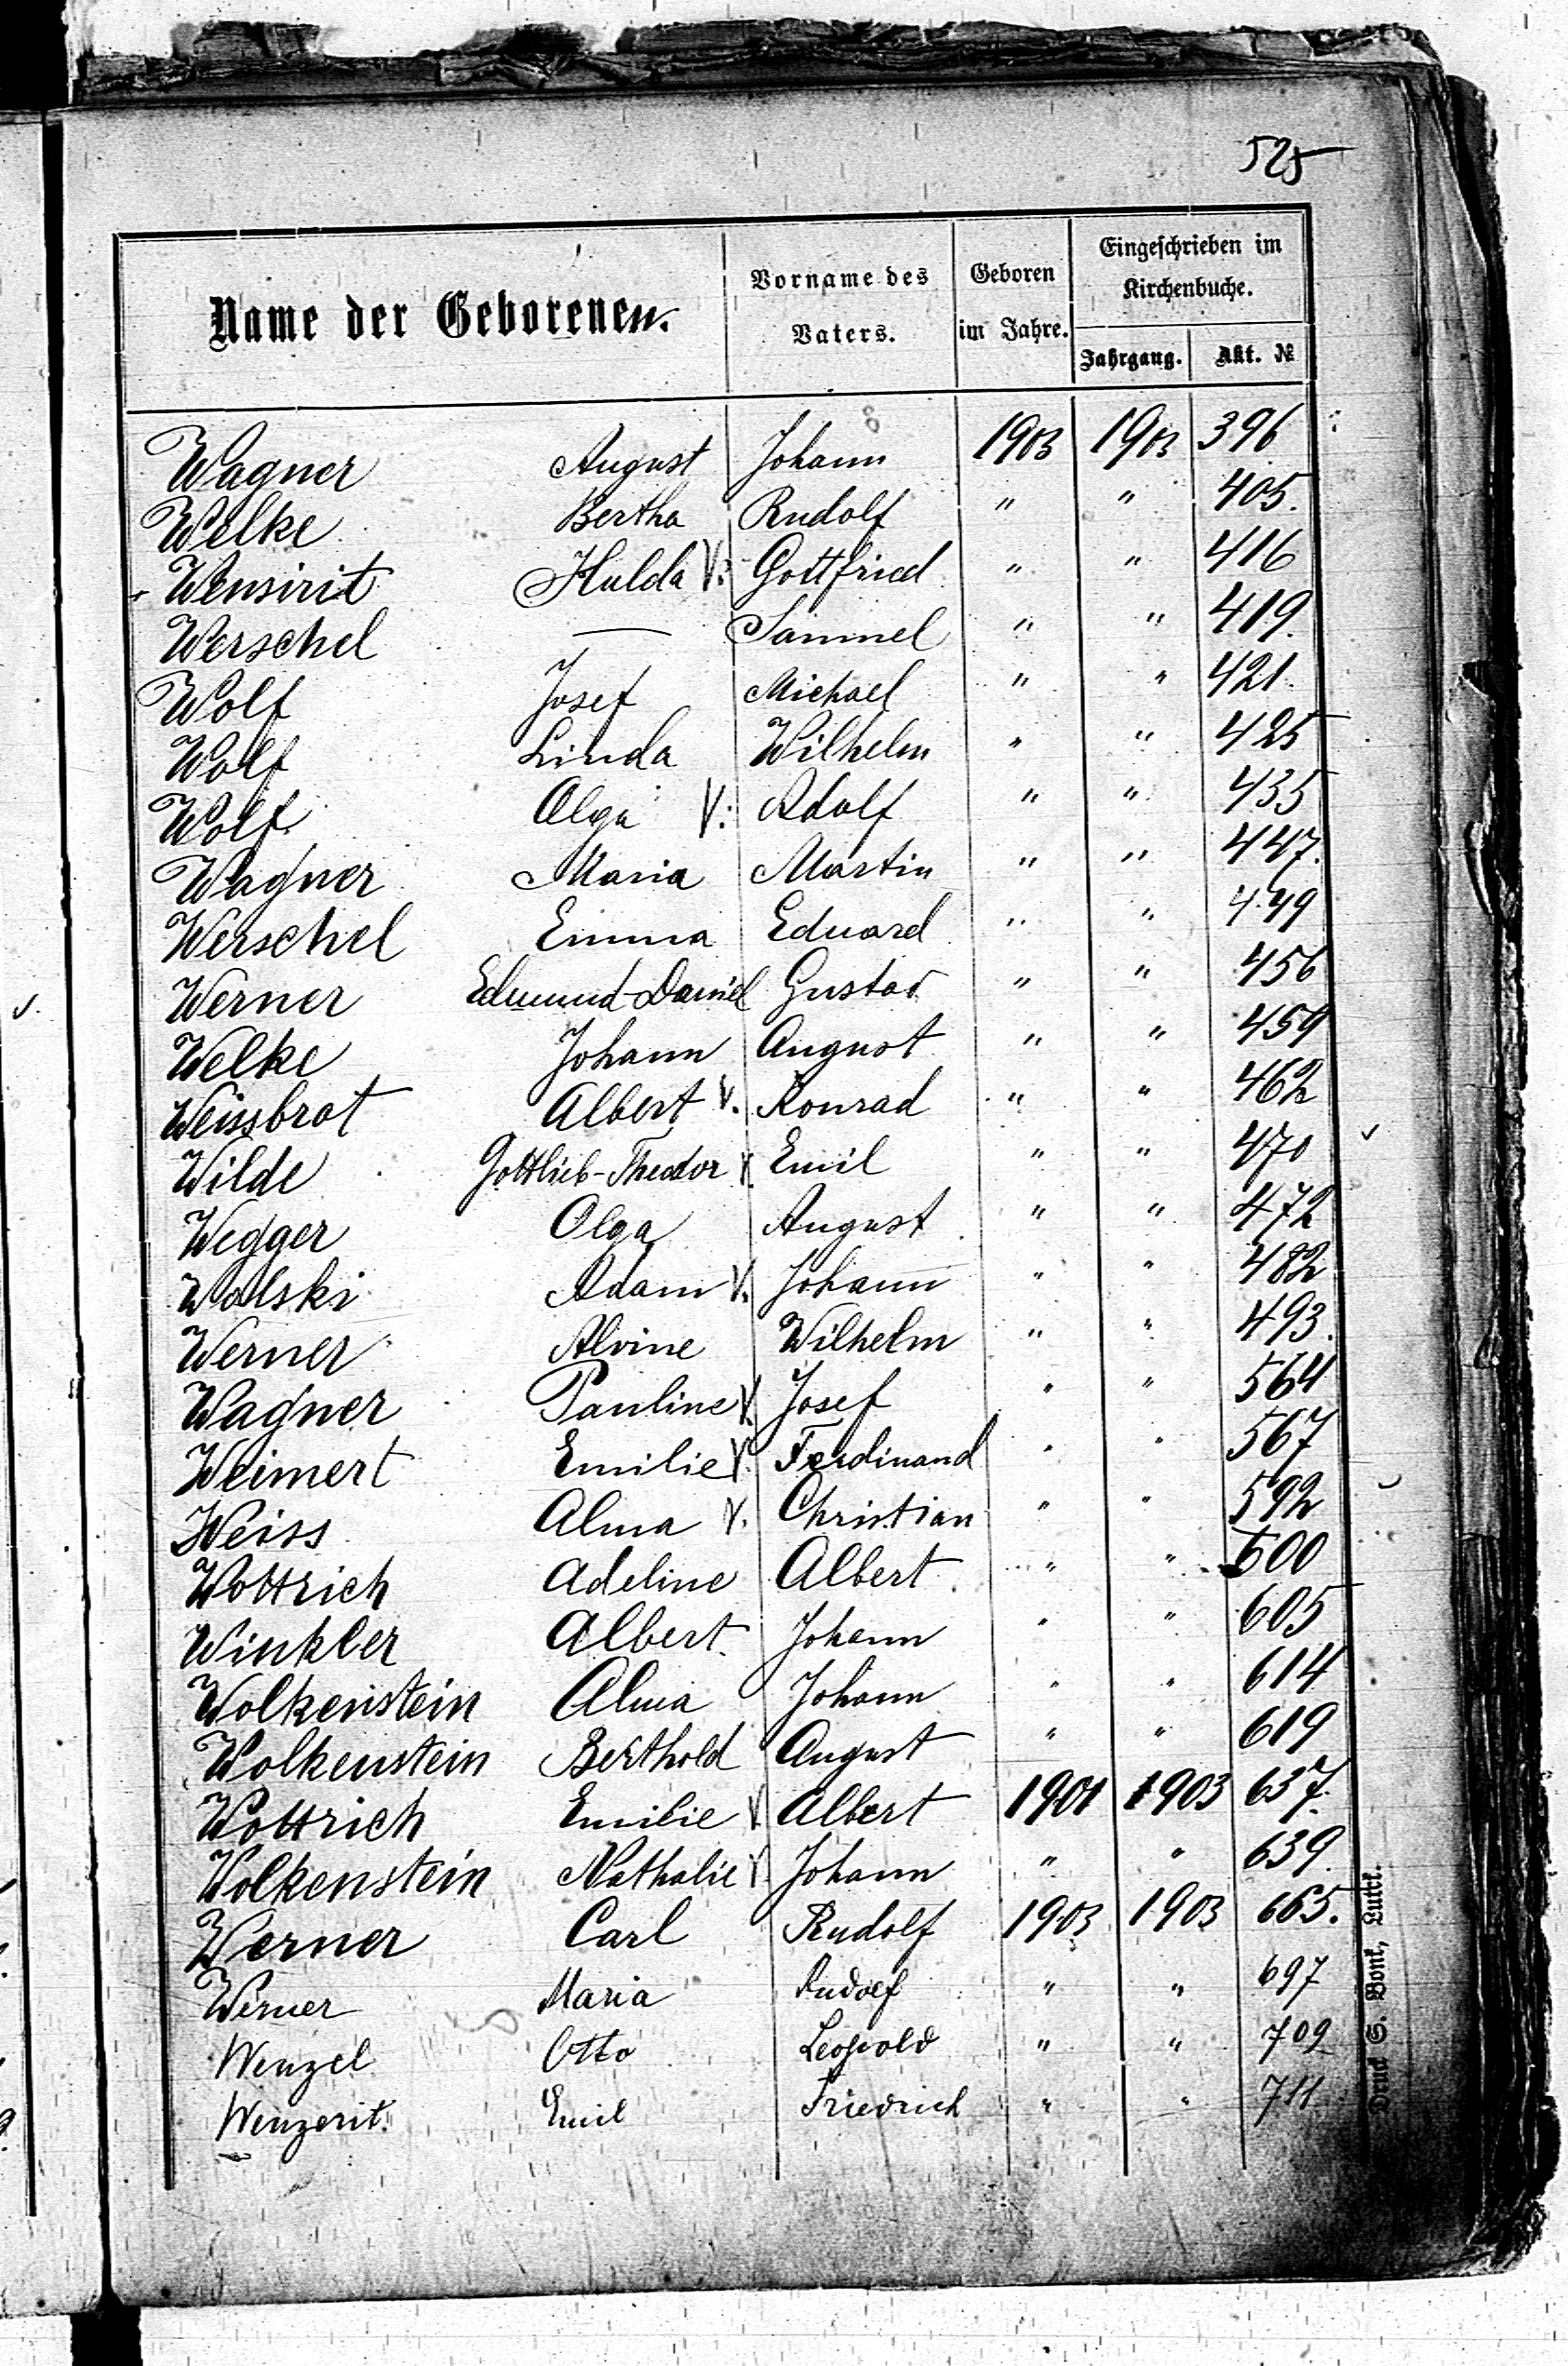 525
Name der Geborenen. Vorname des Vaters. Geboren im Jahre. Eingeschrieben im Kirchenbuche. Jahrgang. Akt. №
Wagner August Johann 1903 1903 396
Welke Bertha Rudolf " " 405.
Wensirit Hulda V. Gottfried " " 416
Werschel — Samuel " " 419.
Wolf Josef Michael " " 421.
Wolf Linda Wilhelm " " 425
Wolf. Olga V. Adolf " " 435
Wagner Maria Martin " " 447.
Werschel Emma Eduard " " 449
Werner Edmund-Daniel Gustav " " 456
Welke Johann August " " 459
Weissbrot Albert V. Konrad " " 462
Wilde Gottlieb-Theodor V. Emil " " 470
Wegger Olga August " " 472
Wolski Adam V. Johann " " 482
Werner Alvine Wilhelm " " 493.
Wagner Pauline V. Josef " " 564
Weimert Emilie V. Ferdinand " " 567
Weiss Alma V. Christian " " 592
Wottrich Adeline Albert " " 600
Winkler Albert Johann " " 605
Wolkenstein Alma Johann " " 614
Wolkenstein Berthold August " " 619
Wottrich Emilie V Albert 1901 1903 637.
Wolkenstein Nathalie V. Johann " " 639.
Werner Carl Rudolf 1903 1903 665.
Werner Maria Rudolf " " 697
Wenzel Otto Leopold " " 709
Wenzerit. Emil Friedrich " " 711
Druck S. Bonk, Lutzk.